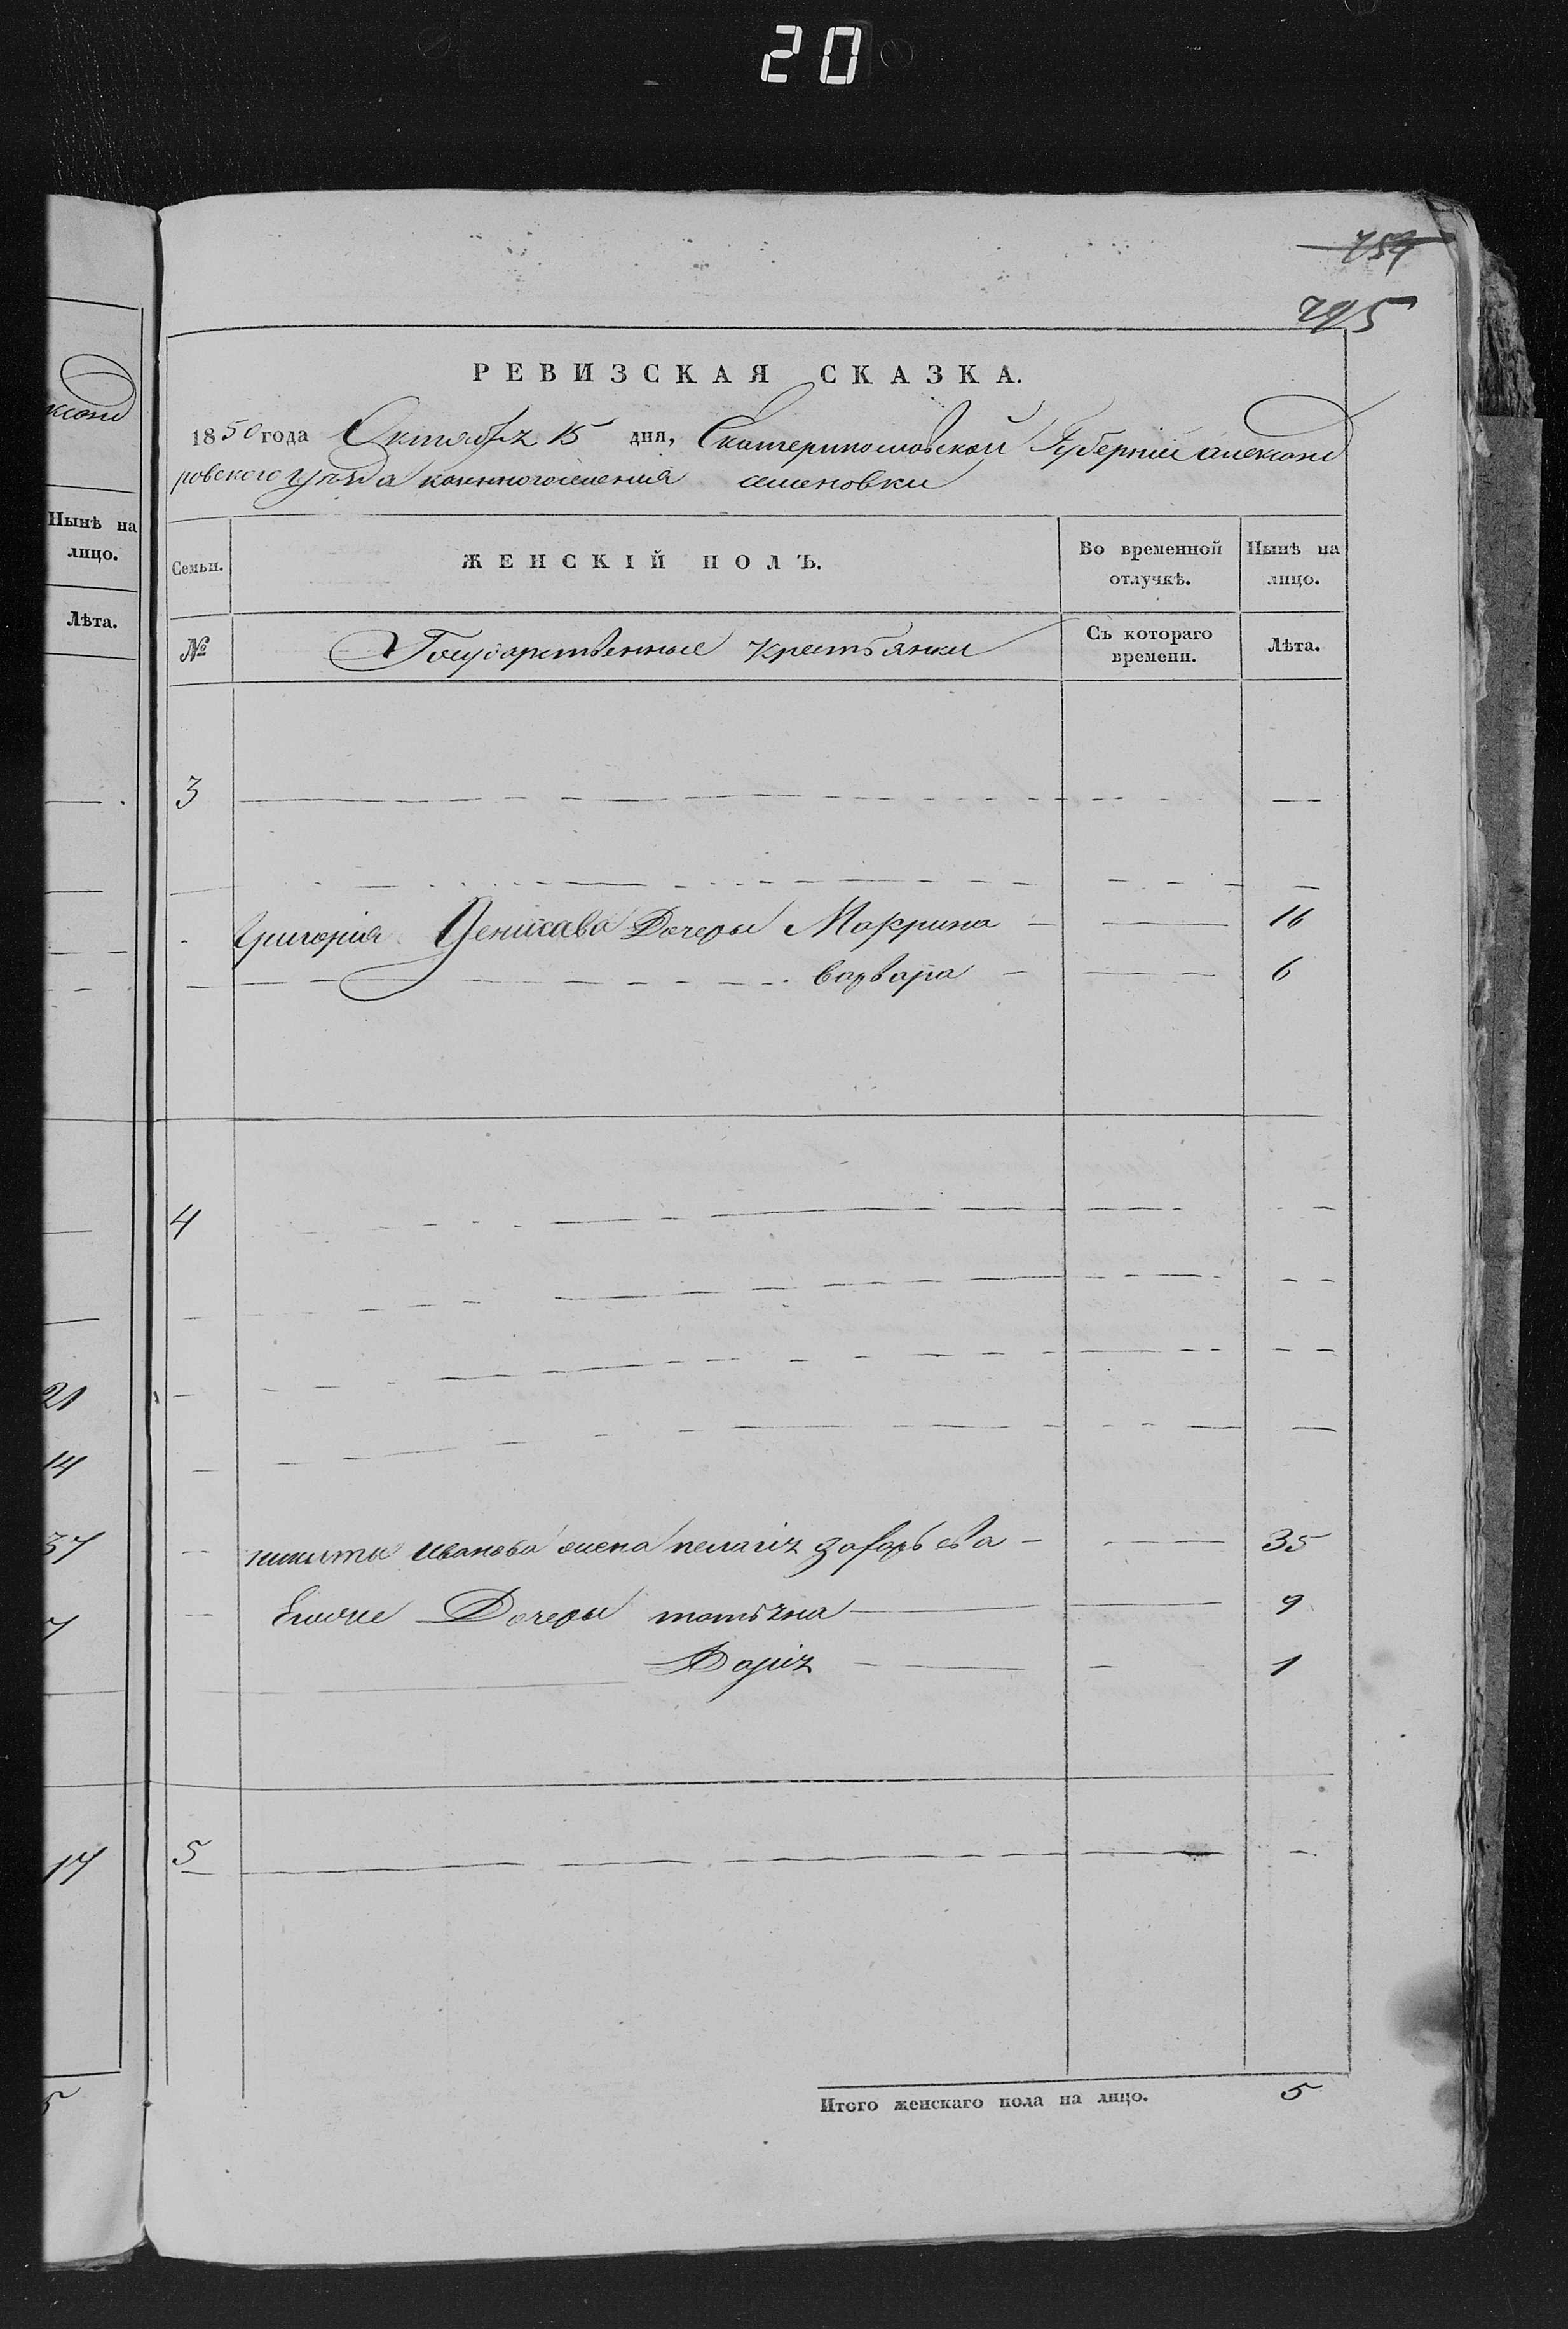 20
759
295
ксанд
Нынѣ на
лицо.
Лѣта.
21
14
37
7
17
5
РЕВИЗСКАЯ СКАЗКА.
1850 года Октября 15 дня, Екатеринославской Губерніи александ
ровского уѣзда селения семеновки
Семьи.
ЖЕНСКІЙ ПОЛЪ.
Во временной отлучкѣ.
Нынѣ на лицо.
№
Государственные крестьянки
Съ котораго времени.
Лѣта.
3
Григорія Денисава Дочеры Макрина 16
варвара 6
4
никиты иванова жена пелагія захарьева 35
Дочеры татьяна 9
Дарія 1
5
Итого женскаго пола на лицо. 5